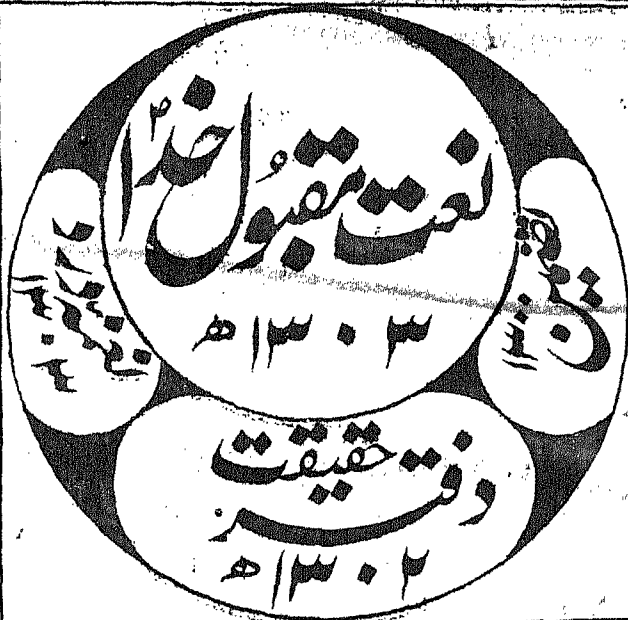 نعت مقبول خدا
۱۳۰۳ھ
دفتر حقیقت
۱۳۰۲ھ
۱۳۰۳